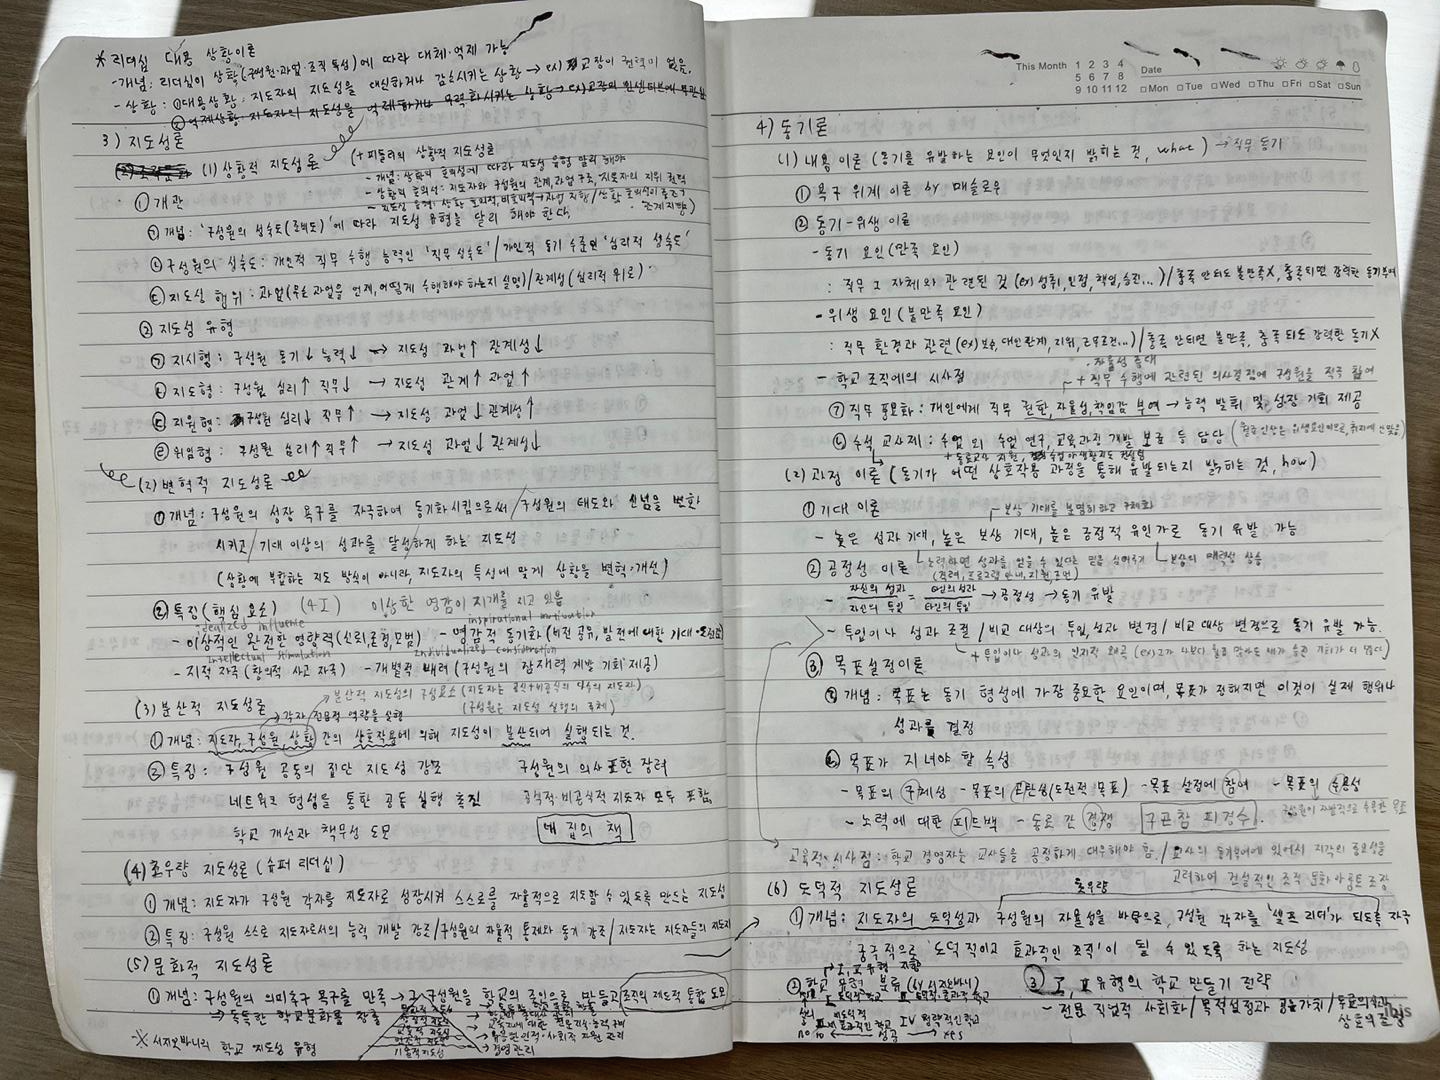 * 리더십 대용 상황이론
- 개념: 리더십이 상황(구성원·과업·조직 특성)에 따라 대체·억제 가능
- 상황: ①대용상황: 지도자의 지도성을 대신하거나 감소시키는 상황 → ex) 교장이 권력이 없음.
② 억제상황: 지도자의 지도성을 억제하거나 무력화시키는 상황 → ex)교장의
3) 지도성론
(1) 상황적 지도성론
(+ 피들러의 상황적 지도성론
- 개념: 상황의 호의성에 따라 지도성 유형 달리 해야
- 상황의 호의성: 지도자와 구성원의 관계, 과업 구조, 지도자의 지위 권력
① 개관
㉠ 개념: '구성원의 성숙도(준비도)'에 따라 지도성 유형을 달리 해야 한다
㉡ 구성원의 성숙도: 개인적 직무 수행 능력인 '직무 성숙도' / 개인적 동기 수준인 '심리적 성숙도'
㉢ 지도성 행위: 과업(무슨 과업을 언제, 어떻게 수행해야 하는지 설명)/관계성(심리적 위로)
② 지도성 유형
㉠ 지시형: 구성원 동기↓ 능력↓ → 지도성 과업↑ 관계성↓
㉡ 지도형: 구성원 심리↑ 직무↓ → 지도성 관계↑ 과업↑
㉢ 지원형: 구성원 심리↓ 직무↑ → 지도성 과업↓ 관계성↑
㉣ 위임형: 구성원 심리↑ 직무↑ → 지도성 과업↓ 관계성↓
(2) 변혁적 지도성론
① 개념: 구성원의 성장 욕구를 자극하여 동기화시킴으로써/구성원의 태도와 신념을 변화
시키고/기대 이상의 성과를 달성하게 하는 지도성
(상황에 부합하는 지도 방식이 아니라, 지도자의 특성에 맞게 상황을 변혁·개선)
② 특징(핵심 요소) (4I) 이상한 명감이 지개를 지고 있음
idealized influence inspirational motivation
- 이상적인 완전한 영향력(신뢰, 존경, 모범) - 명감적 동기화(비전 공유, 발전에 대한 기대·
intellectual stimulation individualized consideration
- 지적 자극(창의적 사고 자극) - 개별적 배려(구성원의 잠재력 계발 기회 제공)
(3) 분산적 지도성론
분산적 지도성의 구성요소 (지도자는 공식+비공식의 다수의 지도자)
→ 각자 전문적 역량을 실행 (구성원은 지도성 실행의 주체)
① 개념: 지도자, 구성원, 상황 간의 상호작용에 의해 지도성이 분산되어 실행되는 것.
② 특징: 구성원 공동의 집단 지도성 강조 구성원의 의사 표현 장려
네트워크 형성을 통한 공동 실행 촉진 공식적·비공식적 지도자 모두 포함,
학교 개선과 책무성 도모 네 집의 책
(4) 초우량 지도성론 (슈퍼 리더십)
① 개념: 지도자가 구성원 각자를 지도자로 성장시켜 스스로를 자율적으로 지도할 수 있도록 만드는 지도성
② 특징: 구성원 스스로 지도자로서의 능력 개발 강조/구성원의 자율적 통제와 동기 강조/지도자는 지도자들의 지도자
(5) 문화적 지도성론
① 개념: 구성원의 의미추구 욕구를 만족 → 구성원을 학교의 주인으로 만들고 조직의 제도적 통합 도모
→ 독특한 학교문화를 창출
※ 서지오바니의 학교 지도성 유형
문화적 지도성
상징적 지도성
교육적 지도성
인간적 지도성 → 유용한 인적·사회적 자원 관리
기술적 지도성 → 경영관리
This Month 1 2 3 4
5 6 7 8
9 10 11 12
Date
Mon Tue Wed Thu Fri Sat Sun
4) 동기론
(1) 내용 이론 (동기를 유발하는 요인이 무엇인지 밝히는 것, what) → 직무 동기
① 욕구 위계 이론 by 매슬로우
② 동기-위생 이론
- 동기 요인(만족 요인)
: 직무 그 자체와 관련된 것 (ex) 성취, 인정, 책임, 승진...)/충족 안되도 불만족X, 충족되면 강력한 동기부여
- 위생 요인(불만족 요인)
: 직무 환경과 관련 (ex) 보수, 대인관계, 지위, 근무조건...)/충족 안되면 불만족, 충족 되도 강력한 동기X
- 학교 조직에의 시사점
· 자율성 증대
+ 직무 수행에 관련된 의사결정에 구성원을 적극 참여
㉠ 직무 풍요화: 개인에게 직무 권한, 자율성, 책임감 부여 → 능력 발휘 및 성장 기회 제공
㉡ 수석 교사제: 수업 외 수업 연구, 교육과정 개발 보급 등 담당
+ 동료교사 지원,
(2) 과정 이론 (동기가 어떤 상호작용 과정을 통해 유발되는지 밝히는 것, how)
① 기대 이론
보상 기대를 분명히하고 구체화
- 높은 성과 기대, 높은 보상 기대, 높은 긍정적 유인가로 동기 유발 가능
노력하면 성과를 얻을 수 있다는 믿음 심어주기 보상의 매력성 상승
② 공정성 이론
- 자신의 성과/자신의 투입 = 타인의 성과/타인의 투입 → 공정성 → 동기 유발
- 투입이나 성과 조절 / 비교 대상의 투입, 성과 변경 / 비교 대상 변경으로 동기 유발 가능.
+ 투입이나 성과의 인지적 왜곡
③ 목표설정이론
㉠ 개념: 목표는 동기 형성에 가장 중요한 요인이며, 목표가 정해지면 이것이 실제 행위나
성과를 결정
㉡ 목표가 지녀야 할 속성
- 목표의 구체성 - 목표의 곤란성(도전적 목표) - 목표 설정에 참여 - 목표의 수용성
- 노력에 대한 피드백 - 동료 간 경쟁 구곤참 피경수 구성원이 자발적으로 수용한 목표
교육적 시사점: 학교 경영자는 교사들을 공정하게 대우해야 함./교사의 동기부여에 있어서 지각의 중요성을
고려하여 건설적인 조직 문화 아름트 조장
(6) 도덕적 지도성론
초우량
① 개념: 지도자의 도덕성과 구성원의 자율성을 바탕으로, 구성원 각자를 '셀프 리더'가 되도록 자극
궁극적으로 '도덕적이고 효과적인 조직'이 될 수 있도록 하는 지도성
→ Ⅰ, Ⅱ 유형 지향
② 학교 유형 분류 (by 서지오바니)
Ⅰ 도덕적 학교 Ⅱ 도덕적·효과적 학교
Ⅲ 효과적인 학교 Ⅳ 정략적인 학교
no 성공 yes
③ Ⅰ, Ⅱ 유형의 학교 만들기 전략
- 전문 직업적 사회화/목적설정과 공유가치/동료의식과
상호의존성
ibis